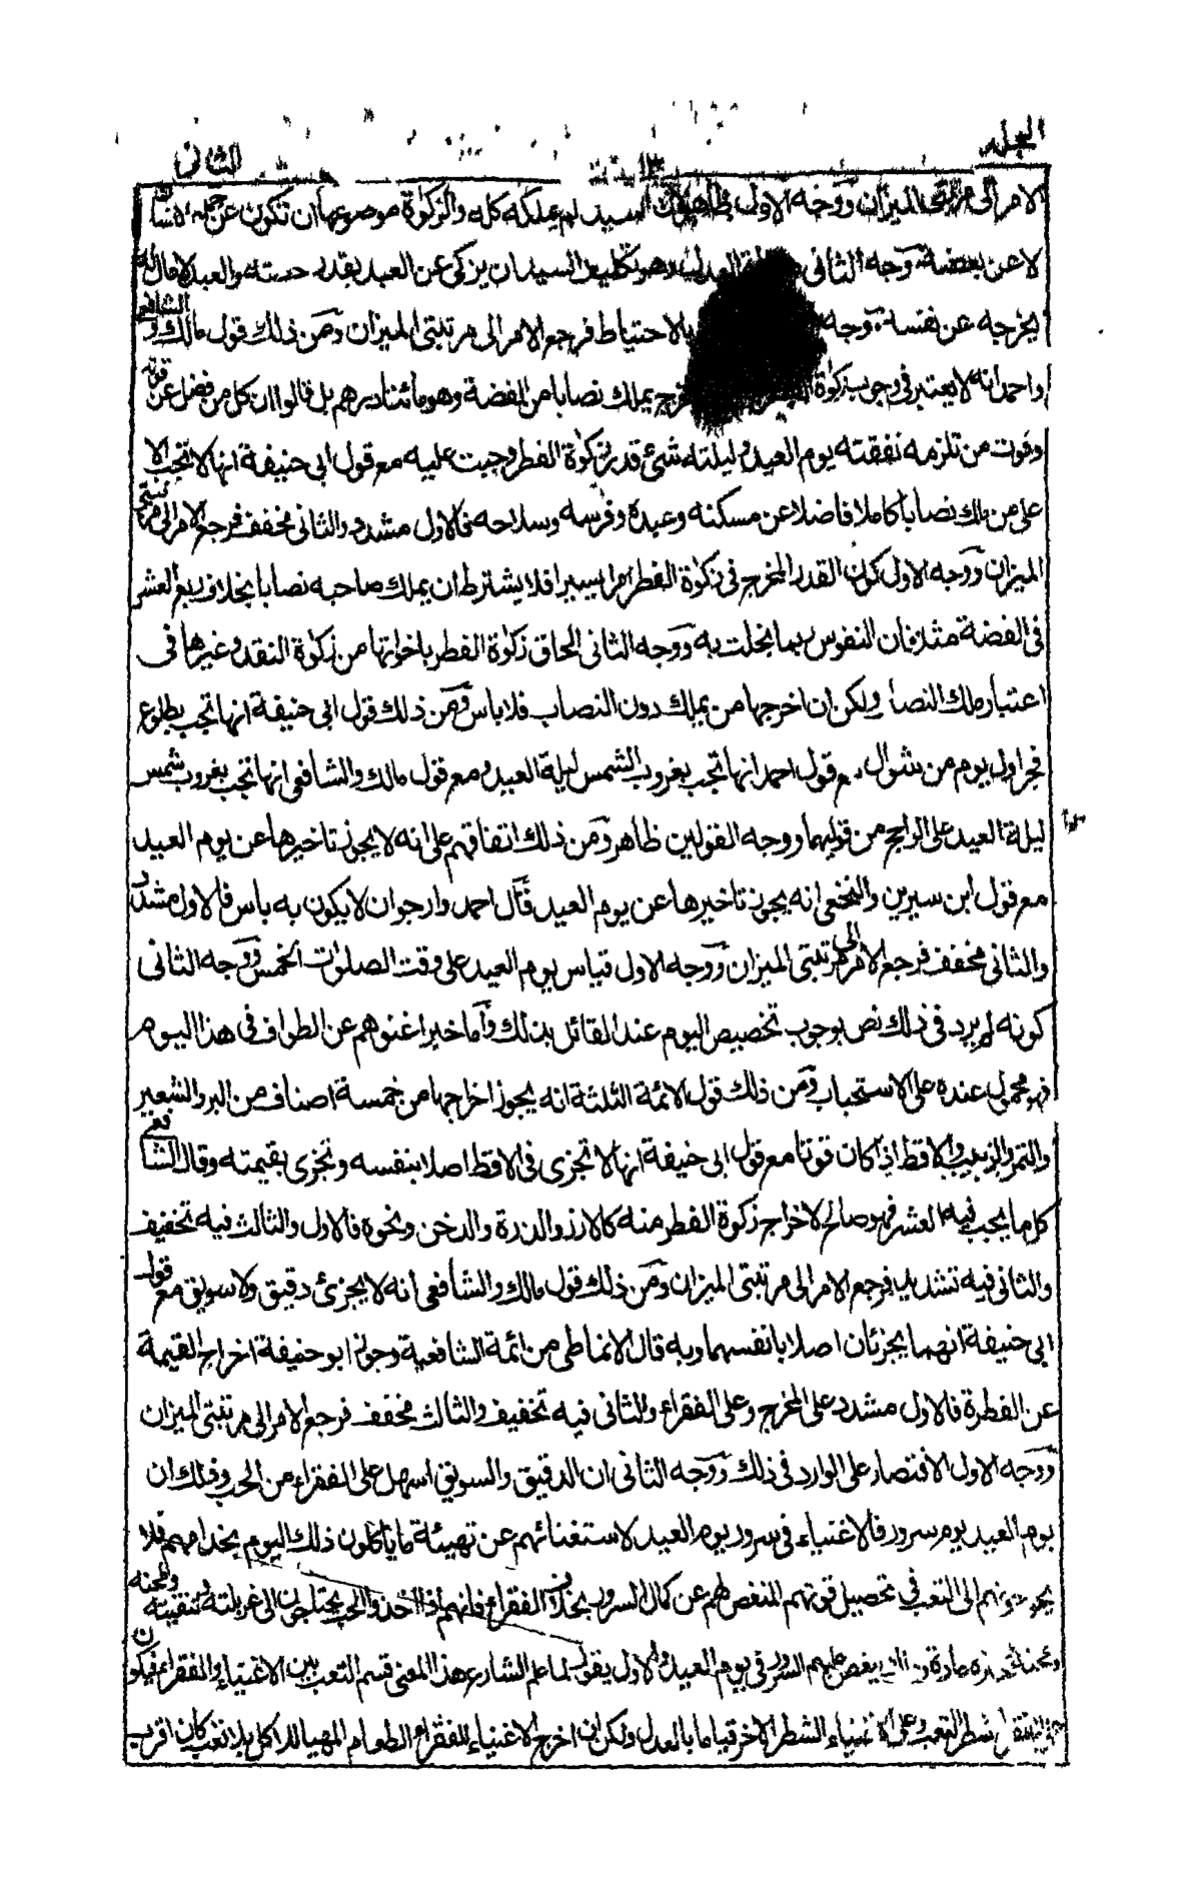 المجلد
١٣
الثانی
الامر الی مرتبتی المیزان ووجه الاول ظاهر لان السید لم یملکه کله والزکوة موضوعها ان تکون عن جملة انسان
لا عن بعضه ووجه الثانی العدل وهو تکلیف السید ان یزکی عن العبد بقدر حصته والعبد لا مال له
یخرجه عن نفسه ووجه بالاحتیاط فرجع الامر الی مرتبتی المیزان ومن ذلک قول مالک والشافعی
واحمد انه لا یعتبر فی وجوب زکوة یملک نصابا من الفضة وهو مائتا درهم بل قالوا ان کل من فضل عن قوته
وقوت من تلزمه نفقته یوم العید ولیلته شئ قدر زکوة الفطر وجبت علیه مع قول ابی حنیفة انها لا تجب الا
علی من ملک نصابا کاملا فاضلا عن مسکنه وعبده وفرسه وسلاحه فالاول مشدد والثانی مخفف فرجع الامر الی مرتبتی
المیزان ووجه الاول کون القدر المخرج فی زکوة الفطر امرا یسیرا فلا یشترط ان یملک صاحبه نصابا بخلاف ربع العشر
فی الفضة مثلا فان النفوس ربما بخلت به ووجه الثانی الحاق زکوة الفطر باخواتها من زکوة النقد وغیرها فی
اعتبار ملک النصاب ولکن ان اخرجها من یملک دون النصاب فلا باس ومن ذلک قول ابی حنیفة انها تجب بطلوع
فجر اول یوم من شوال مع قول احمد انها تجب بغروب الشمس لیلة العید ومع قول مالک والشافعی انها تجب بغروب شمس
لیلة العید علی الراجح من قولیهما ووجه القولین ظاهر ومن ذلک اتفاقهم علی انه لا یجوز تاخیرها عن یوم العید
مع قول ابن سیرین والنخعی انه یجوز تاخیرها عن یوم العید قال احمد وارجو ان لا یکون به باس فالاول مشدد
والثانی مخفف فرجع الامر الی مرتبتی المیزان ووجه الاول قیاس یوم العید علی وقت الصلوات الخمس ووجه الثانی
کونه لم یرد فی ذلک نص بوجوب تخصیص الیوم عند القائل بذلک واما خبر اغنوهم عن الطواف فی هذا الیوم
فهو محمول عنده علی الاستحباب ومن ذلک قول الائمة الثلثة انه یجوز اخراجها من خمسة اصناف من البر والشعیر
والتمر والزبیب والاقط اذا کان قوتا مع قول ابی حنیفة انها لا تجزی فی الاقط اصلا بنفسه وتجزی بقیمته وقال الشافعی
کل ما یجب فیه العشر فهو صالح لاخراج زکوة الفطر منه کالارز والذرة والدخن ونحوه فالاول والثالث فیه تخفیف
والثانی فیه تشدید فرجع الامر الی مرتبتی المیزان ومن ذلک قول مالک والشافعی انه لا یجزئ دقیق ولا سویق مع قول
ابی حنیفة انهما یجزئان اصلا بانفسهما وبه قال الانماطی من ائمة الشافعیة وجوز ابو حنیفة اخراج القیمة
عن الفطرة فالاول مشدد علی المخرج وعلی الفقراء والثانی فیه تخفیف والثالث مخفف فرجع الامر الی مرتبتی المیزان
ووجه الاول الاقتصار علی الوارد فی ذلک ووجه الثانی ان الدقیق والسویق اسهل علی الفقراء من الحب وذلک ان
یوم العید یوم سرور فالاغنیاء فی سرور یوم العید لاستغنائهم عن تهیئة ما یاکلون ذلک الیوم بخدامهم فلا
یحوجونهم الی التعب فی تحصیل قوتهم المنغص لهم عن کمال السرور بخلاف الفقراء فانهم اذا اخذوا الحب یحتاجون الی غربلته وتنقیته وطحنه
وعجنه وخبزه عادة وذلک ینغص علیهم السرور فی یوم العید والاول یقول لما علم الشارع هذا المعنی قسم التعب بین الاغنیاء والفقراء فیکون
علی الفقراء شطر التعب وعلی الاغنیاء الشطر الاخر قیاما بالعدل ولکن ان اخرج الاغنیاء للفقراء الطعام المهیا للاکل بلا تعب کان اقرب